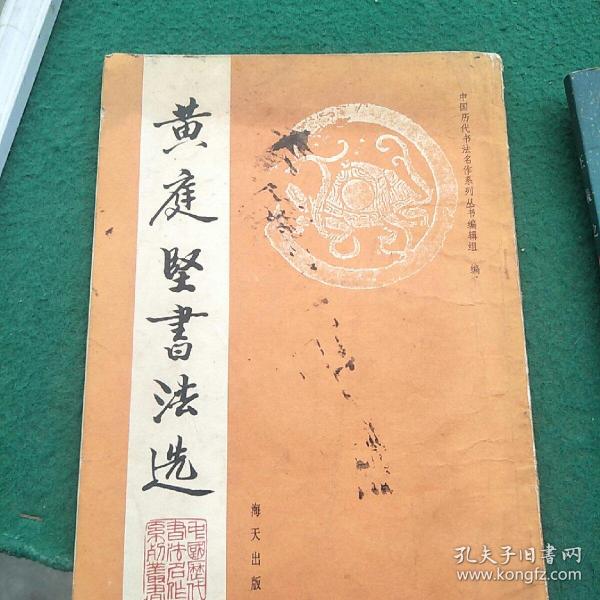 黄庭堅書法选
中国历代书法名作系列丛书编辑组 编
海天出版
中國歷代
書法名作
系列叢書
孔夫子旧书网
www.kongfz.com